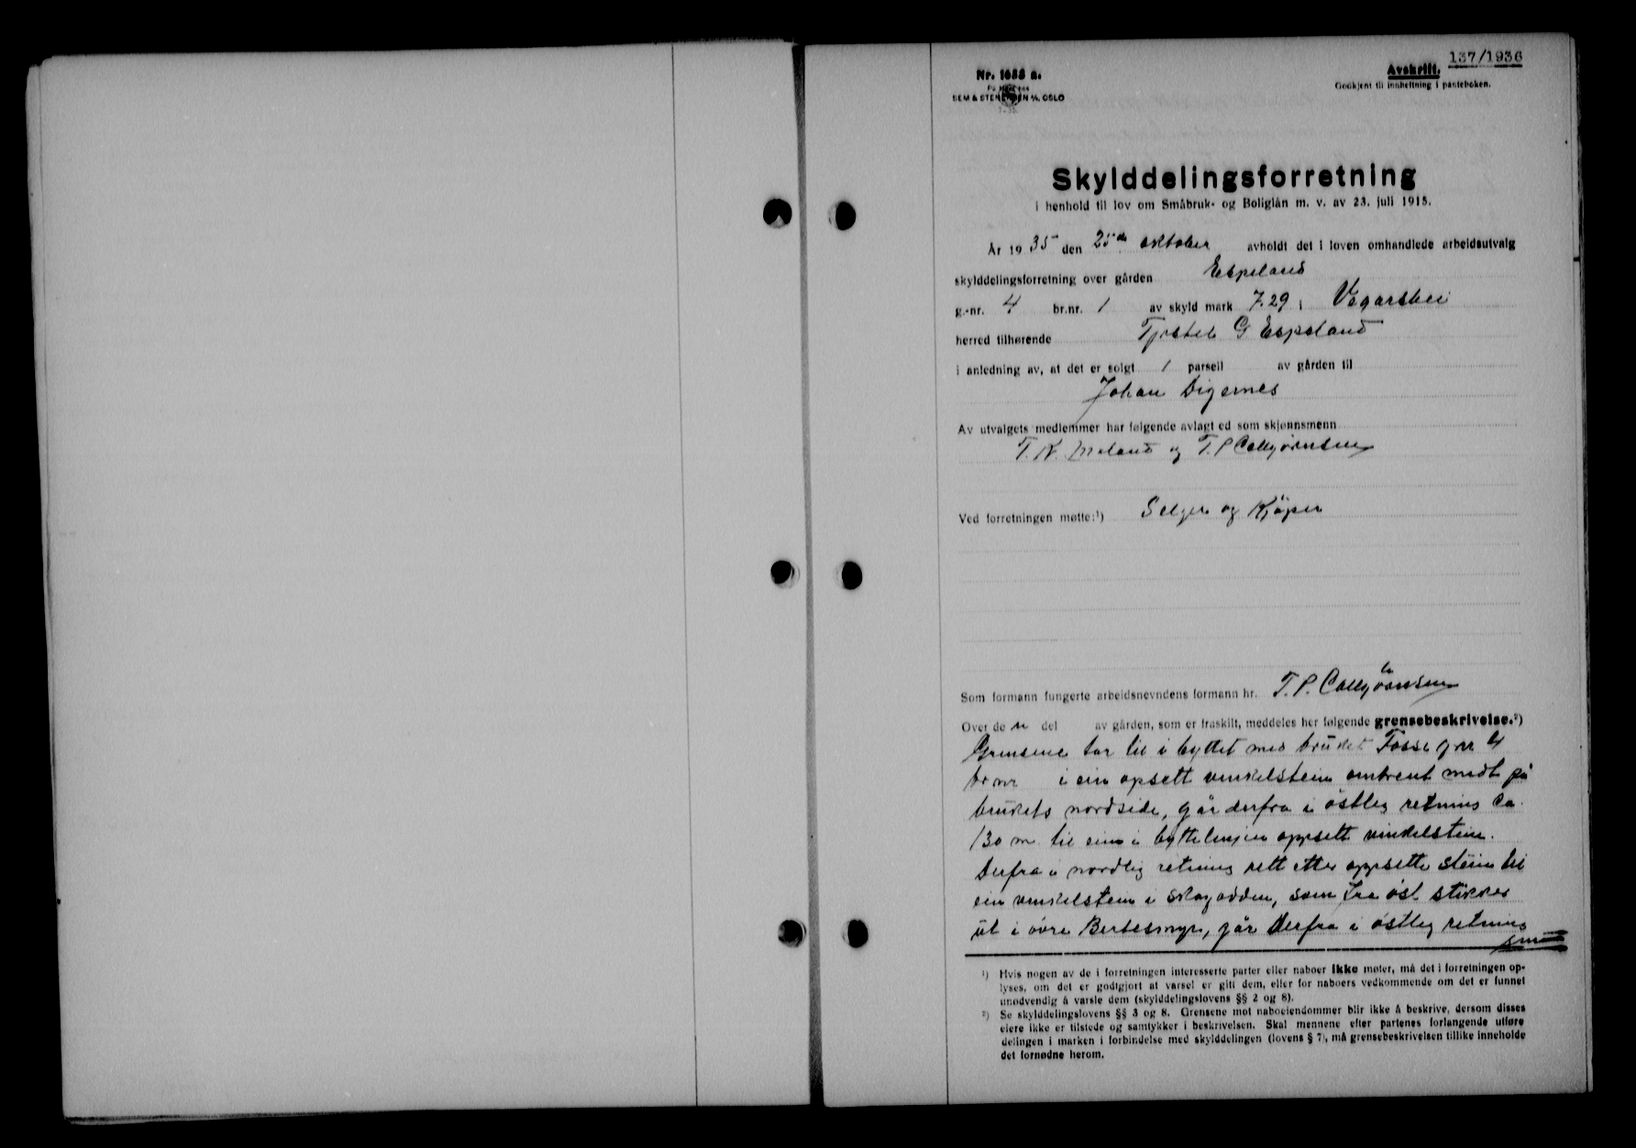 137/1936
Nr. 1688 a.
Avskrift.
Godkjent til innheftning i panteboken.
SEM & STENERSEN A/S, OSLO
Skylddelingsforretning
i henhold til lov om Småbruk- og Boliglån m. v. av 23. juli 1915.
År 1935 den 25de oktober avholdt det i loven omhandlede arbeidsutvalg
skylddelingsforretning over gården Espeland
g.-nr. 4 br.nr. 1 av skyld mark 7.29 i Vegarshei
herred tilhørende G Espeland
i anledning av, at det er solgt 1 parsell av gården til
Johan Digernes
Av utvalgets medlemmer har følgende avlagt ed som skjønnsmenn
T. N. og T. P
Ved forretningen møtte:¹) Selger og Kjöper
Som formann fungerte arbeidsnevndens formann hr. T. P.
Over de n del av gården, som er fraskilt, meddeles her følgende grensebeskrivelse.²)
Grensene tar til i byttet med bruket Fosse gnr 4
brnr i ein opsett vinkelstein ombrent midt på
brukets nordside, går derfra i östleg retning ca.
130 m til ein i byttelinjen oppsett vinkelstein.
Derfra i nordlig retning rett etter oppsette stein til
ein vinkelstein i , som fra öst stikker
ut i övre , går derfra i östleg retning
¹) Hvis nogen av de i forretningen interesserte parter eller naboer ikke møter, må det i forretningen op-
lyses, om det er godtgjort at varsel er gitt dem, eller for naboers vedkommende om det er funnet
unødvendig å varsle dem (skylddelingslovens §§ 2 og 8).
²) Se skylddelingslovens §§ 3 og 8. Grensene mot naboeiendommer blir ikke å beskrive, dersom disses
eiere ikke er tilstede og samtykker i beskrivelsen. Skal mennene efter partenes forlangende utføre
delingen i marken i forbindelse med skylddelingen (lovens § 7), må grensebeskrivelsen tillike inneholde
det fornødne herom.